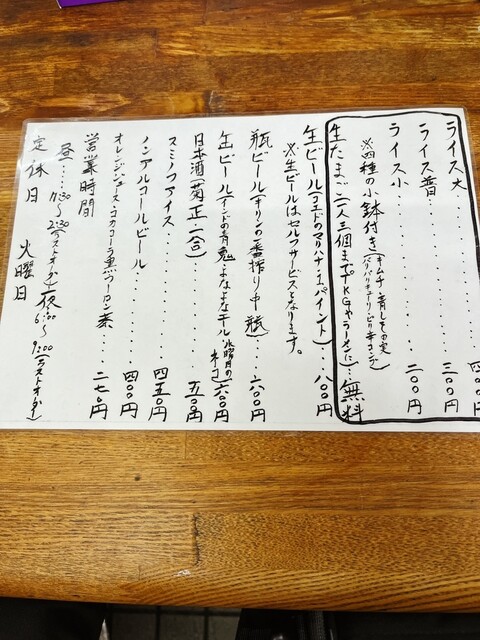 ライス大……四〇〇円
ライス普……三〇〇円
ライス小……二〇〇円
※四種の小鉢付き(キムチ・青しその実
パリパリキューリ・ピリ辛コンブ)
生たまご(一人三個までTKGやラーメンに)…無料
生ビール(コエドのマリハナ・1パイント)…八〇〇円
※生ビールはセルフサービスとなります。
瓶ビール(キリンの一番搾り中瓶)…六〇〇円
缶ビール(インドの青鬼・よなよなエール・水曜日のネコ)六〇〇円
日本酒(菊正・一合)……五〇〇円
スミノフアイス……四五〇円
ノンアルコールビール……四〇〇円
オレンジジュース・コカコーラ・黒ウーロン茶……二七〇円
営業時間
昼……11:30〜2:30(ラストオーダー)夜6:00〜9:00(ラストオーダー)
定休日 火曜日